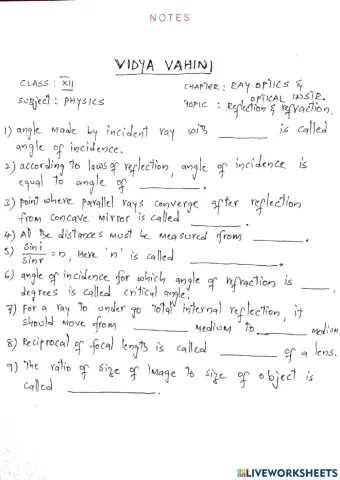 NOTES
VIDYA VAHINI
CLASS : XII
CHAPTER : RAY OPTICS &
OPTICAL INSTR.
SUBJECT : PHYSICS
TOPIC : Reflection & refraction.
1) angle made by incident ray with ________ is called
angle of incidence.
2) according to laws of reflection, angle of incidence is
equal to angle of ________.
3) point where parallel rays converge after reflection
from concave mirror is called ________.
4) All the distances must be measured from ________.
5) sin i / sin r = n, Here 'n' is called ________.
6) angle of incidence for which angle of refraction is ____,
degrees is called critical angle.
7) For a ray to under go total internal reflection, it
should move from ________ medium to ________ medium
8) Reciprocal of focal length is called ________ of a lens.
9) The ratio of size of image to size of object is
called ________.
LIVEWORKSHEETS